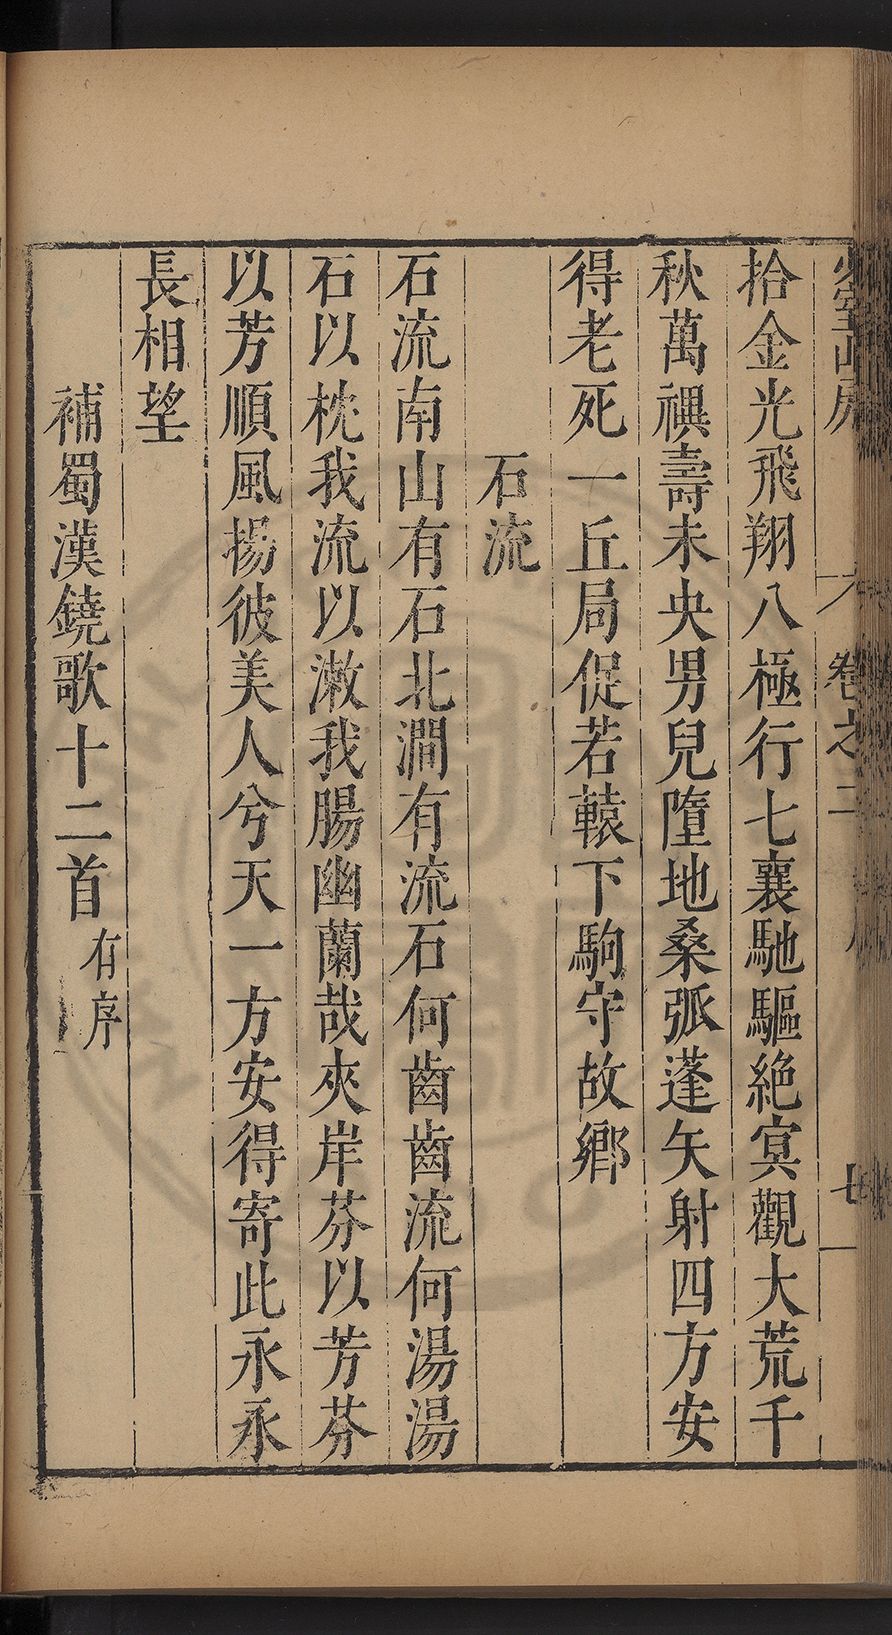 少室山房 卷之二 七
拾金光飛翔八極行七襄馳驅絶㝠觀大荒千
秋萬禩壽未央男兒墮地桑弧蓬矢射四方安
得老死一丘局促若轅下駒守故鄉
石流
石流南山有石北澗有流石何齒齒流何湯湯
石以枕我流以漱我腸幽蘭哉夾岸芬以芳芬
以芳順風揚彼美人兮天一方安得寄此永永
長相望
補蜀漢鐃歌十二首有序